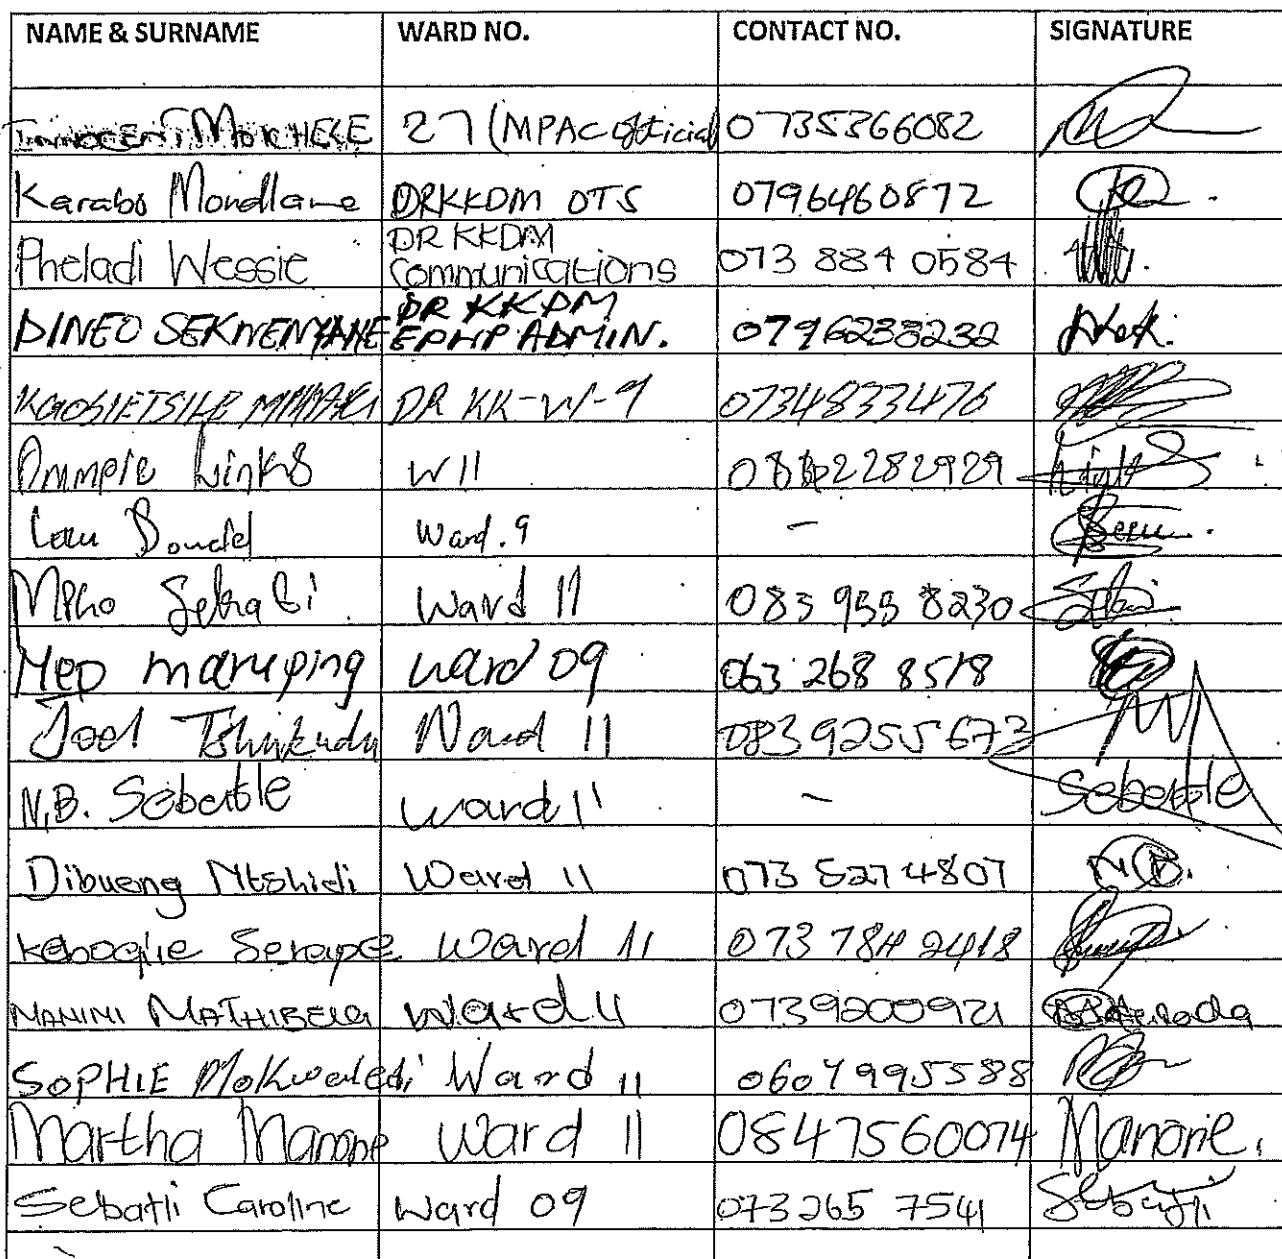 NAME & SURNAME WARD NO. CONTACT NO. SIGNATURE
INNOCENT MOKHELE 27 (MPAC official 0735366082
Karabo Mondlane DRKKDM OTS 0796460872
Pheladi Wessie DR KKDM Communications 073 884 0584
DINEO SEKWENYANE DR KKDM EPWP ADMIN. 0796238232
DR KK-W-9 0734833476
Links W11
Ward.9 -
Mpho Ward 11 083 955 8230
maruping ward 09 063 268 8518
Joel Tshukudu Ward 11 0839255673
N.B. ward 11 -
Dibueng Ntshidi Ward 11 073 5274807 N.B.
Ward 11
MANINI MATHIBELA Ward 11 0739200921
SOPHIE Mokwaledi Ward 11 0604995588
Martha Manone Ward 11 0847560074 Manone.
Caroline Ward 09 073 265 7541